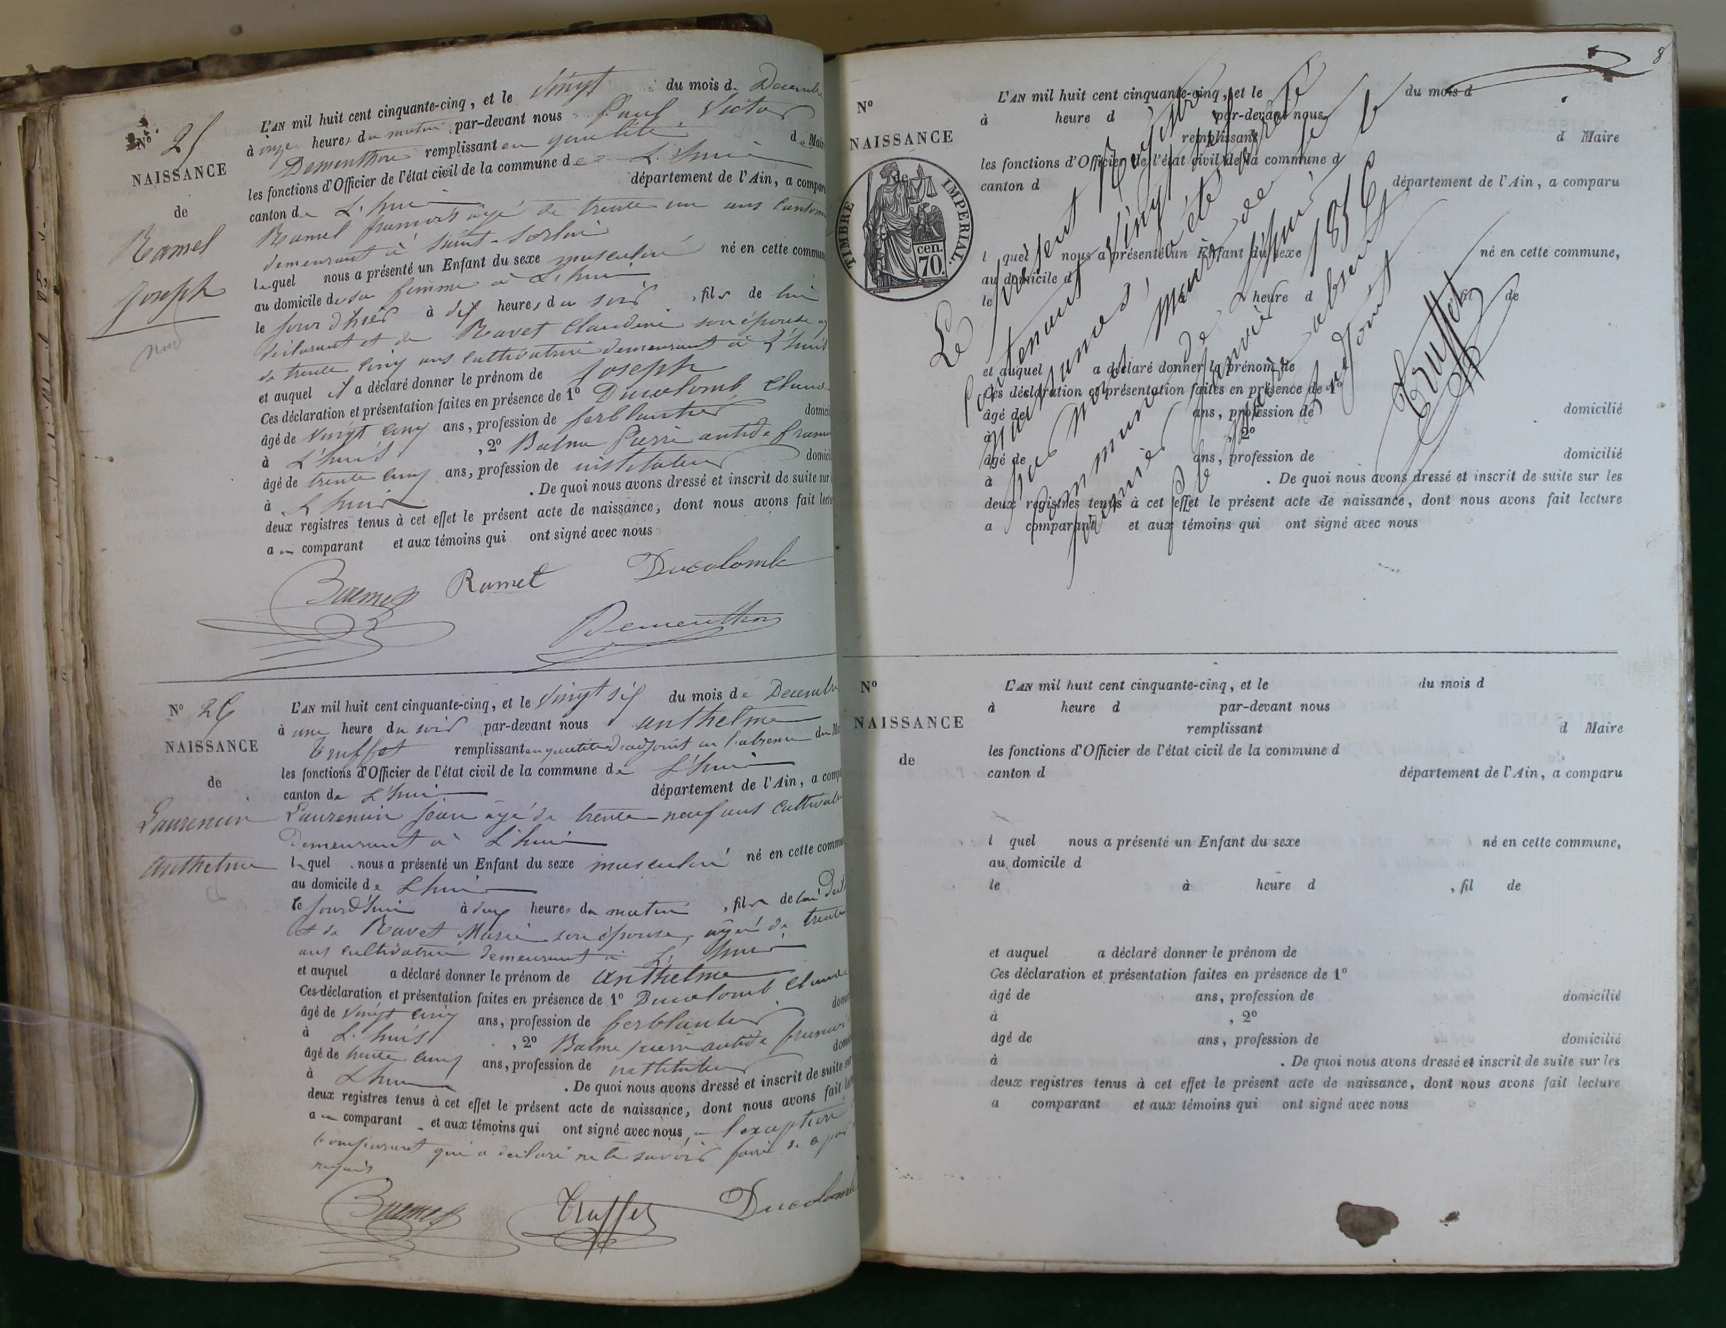 N° 25
NAISSANCE
de
Ramel
Joseph
L'AN mil huit cent cinquante-cinq, et le vingt du mois de Decembre
à onze heures du matin par-devant nous Paul Victor
Dementhon remplissant en qualité de Maire
les fonctions d'Officier de l'état civil de la commune de L'huis
canton de L'huis département de l'Ain, a comparu
Ramel françois âgé de trente un ans
demeurant à Saint-Sorlin
lequel nous a présenté un Enfant du sexe masculin né en cette commune
au domicile de sa femme à L'huis
le jour d'hier à dix heures du soir, fils de lui
déclarant et de Ravet Claudine son épouse
de trente cinq ans cultivatrice demeurant à L'huis
et auquel il a déclaré donner le prénom de Joseph
Ces déclaration et présentation faites en présence de 1° Ducolomb Claude
âgé de vingt cinq ans, profession de ferblantier domicilié
à L'huis, 2° Balme Pierre antide françois
âgé de trente cinq ans, profession de instituteur domicilié
à L'huis. De quoi nous avons dressé et inscrit de suite sur
deux registres tenus à cet effet le présent acte de naissance, dont nous avons fait lecture
a comparant et aux témoins qui ont signé avec nous
Balme Ramel Ducolomb
Dementhon
N° 26
NAISSANCE
de
Laurencin
anthelme
L'AN mil huit cent cinquante-cinq, et le vingt six du mois de Decembre
à une heure du soir par-devant nous anthelme
Truffet remplissant en qualité d'adjoint en l'absence du Maire
les fonctions d'Officier de l'état civil de la commune de L'huis
canton de L'huis département de l'Ain, a comparu
Laurencin Jean âgé de trente-neuf ans cultivateur
demeurant à L'huis
lequel nous a présenté un Enfant du sexe masculin né en cette commune
au domicile de L'huis
le jourd'hui à heures du matin, fils de lui
et de Ravet Marie son épouse, âgée de trente
ans cultivatrice demeurant à L'huis
et auquel a déclaré donner le prénom de anthelme
Ces déclaration et présentation faites en présence de 1° Ducolomb Claude
âgé de vingt cinq ans, profession de ferblantier
à L'huis, 2° Balme pierre antide françois
âgé de trente cinq ans, profession de instituteur
à L'huis. De quoi nous avons dressé et inscrit de suite sur
deux registres tenus à cet effet le présent acte de naissance, dont nous avons fait
a comparant et aux témoins qui ont signé avec nous, l'exception
comparant qui a déclaré ne le savoir faire de ce
requis
Balme Truffet Ducolomb
8
N°
NAISSANCE
TIMBRE IMPERIAL.
cen.
70.
L'AN mil huit cent cinquante-cinq, et le du mois d
à heure d par-devant nous
remplissant d Maire
les fonctions d'Officier de l'état civil de la commune d
canton d département de l'Ain, a comparu
l quel nous a présenté un Enfant du sexe né en cette commune,
au domicile d
le heure d fil de
et auquel a déclaré donner le prénom de
Ces déclaration et présentation faites en présence de 1°
âgé de ans, profession de domicilié
à 2°
âgé de ans, profession de domicilié
à . De quoi nous avons dressé et inscrit de suite sur les
deux registres tenus à cet effet le présent acte de naissance, dont nous avons fait lecture
a comparant et aux témoins qui ont signé avec nous
Le présent Registre
contenant vingt six
naissances a été arrêté
par nous Maire de la
commune de Lhuis le
premier janvier 1856
absent
adjoint
Truffet
N°
NAISSANCE
de
L'AN mil huit cent cinquante-cinq, et le du mois d
à heure d par-devant nous
remplissant d Maire
les fonctions d'Officier de l'état civil de la commune d
canton d département de l'Ain, a comparu
l quel nous a présenté un Enfant du sexe né en cette commune,
au domicile d
le à heure d , fil de
et auquel a déclaré donner le prénom de
Ces déclaration et présentation faites en présence de 1°
âgé de ans, profession de domicilié
à , 2°
âgé de ans, profession de domicilié
à . De quoi nous avons dressé et inscrit de suite sur les
deux registres tenus à cet effet le présent acte de naissance, dont nous avons fait lecture
a comparant et aux témoins qui ont signé avec nous